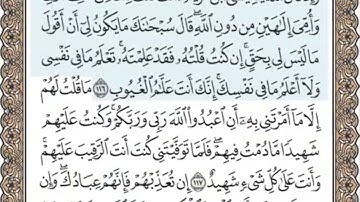 وَأُمِّيَ إِلَٰهَيْنِ مِن دُونِ ٱللَّهِ ۖ قَالَ سُبْحَٰنَكَ مَا يَكُونُ لِيٓ أَنْ أَقُولَ
مَا لَيْسَ لِي بِحَقٍّ ۚ إِن كُنتُ قُلْتُهُۥ فَقَدْ عَلِمْتَهُۥ ۚ تَعْلَمُ مَا فِي نَفْسِي
وَلَآ أَعْلَمُ مَا فِي نَفْسِكَ ۚ إِنَّكَ أَنتَ عَلَّٰمُ ٱلْغُيُوبِ ١١٦ مَا قُلْتُ لَهُمْ
إِلَّا مَآ أَمَرْتَنِي بِهِۦٓ أَنِ ٱعْبُدُوا۟ ٱللَّهَ رَبِّي وَرَبَّكُمْ ۚ وَكُنتُ عَلَيْهِمْ
شَهِيدًا مَّا دُمْتُ فِيهِمْ ۖ فَلَمَّا تَوَفَّيْتَنِي كُنتَ أَنتَ ٱلرَّقِيبَ عَلَيْهِمْ ۚ
وَأَنتَ عَلَىٰ كُلِّ شَيْءٍ شَهِيدٌ ١١٧ إِن تُعَذِّبْهُمْ فَإِنَّهُمْ عِبَادُكَ ۖ وَإِن